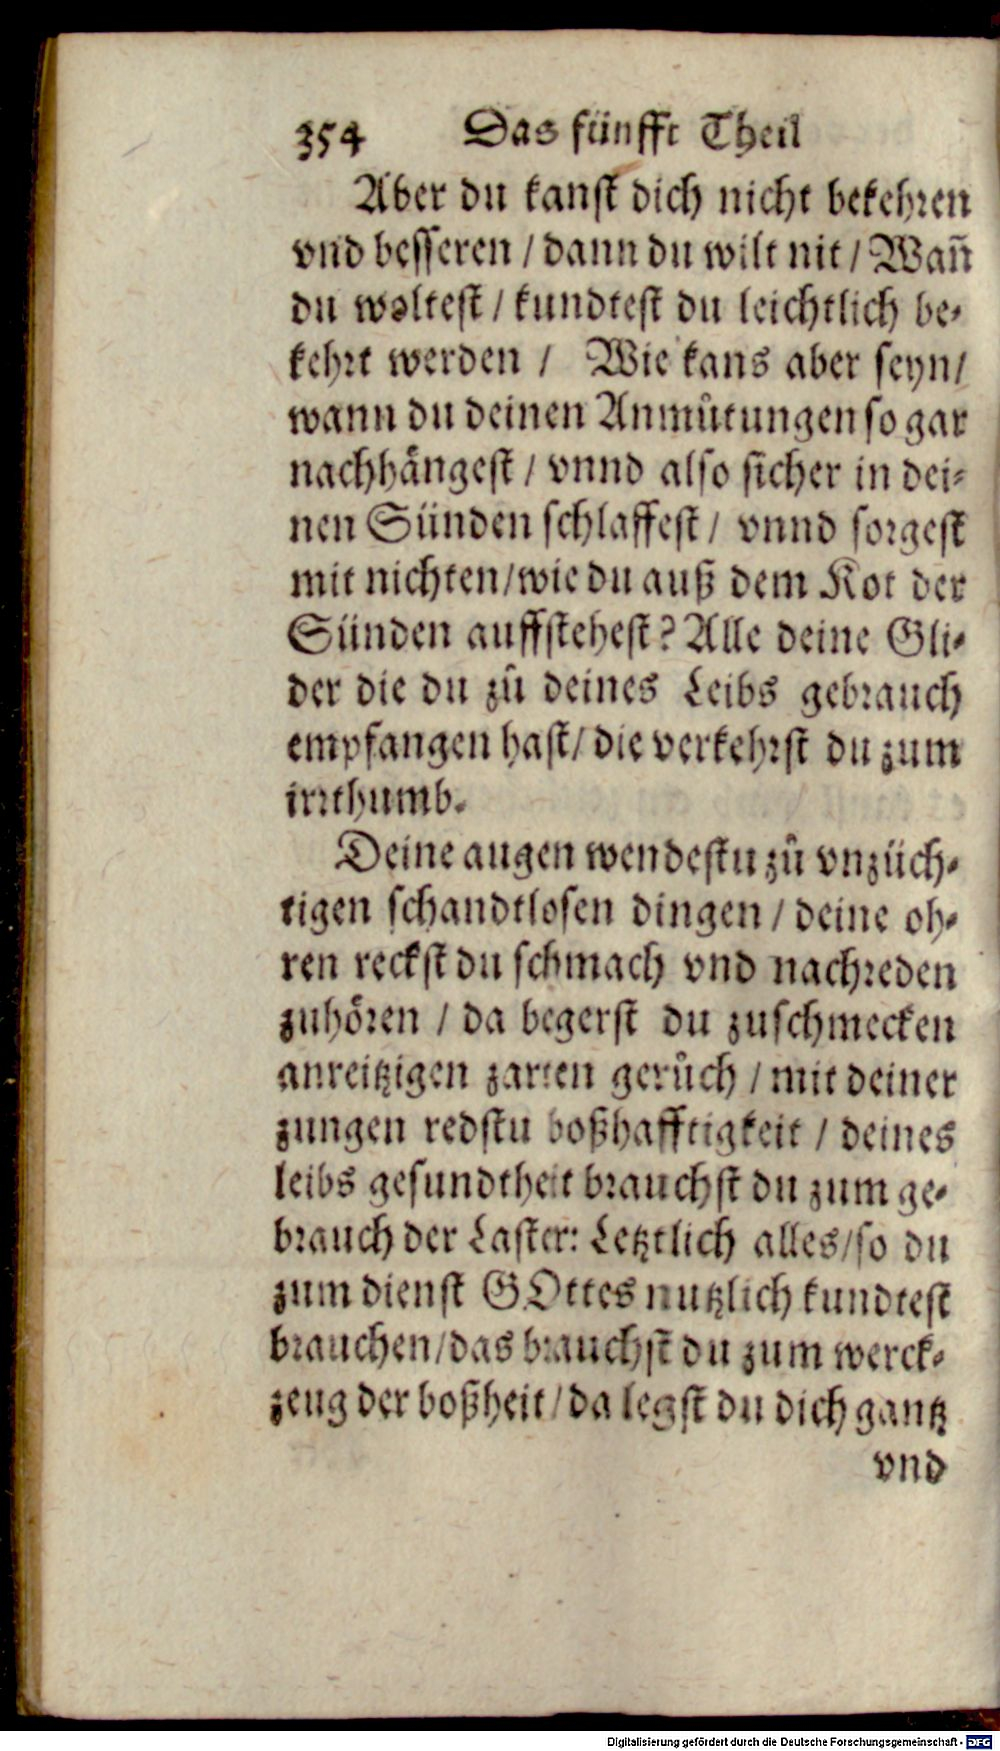 354 Das fünfft Theil
Aber du kanst dich nicht bekehren
vnd besseren / dann du wilt nit / Wañ
du woltest / kundtest du leichtlich be-
kehrt werden / Wie kans aber seyn /
wann du deinen Anmůtungen so gar
nachhångest / vnnd also sicher in dei-
nen Sünden schlaffest / vnnd sorgest
mit nichten / wie du auß dem Kot der
Sünden auffstehest? Alle deine Gli-
der die du zů deines Leibs gebrauch
empfangen hast / die verkehrst du zum
irrthumb.
Deine augen wendestu zů vnzüch-
tigen schandtlosen dingen / deine oh-
ren reckst du schmach vnd nachreden
zuhören / da begerst du zuschmecken
anreitzigen zarten gerůch / mit deiner
zungen redstu boßhafftigkeit / deines
leibs gesundtheit brauchst du zum ge-
brauch der Laster: Letztlich alles / so du
zum dienst GOttes nutzlich kundtest
brauchen / das brauchst du zum werck-
zeug der boßheit / da legst du dich gantz
vnd
Digitalisierung gefördert durch die Deutsche Forschungsgemeinschaft - DFG